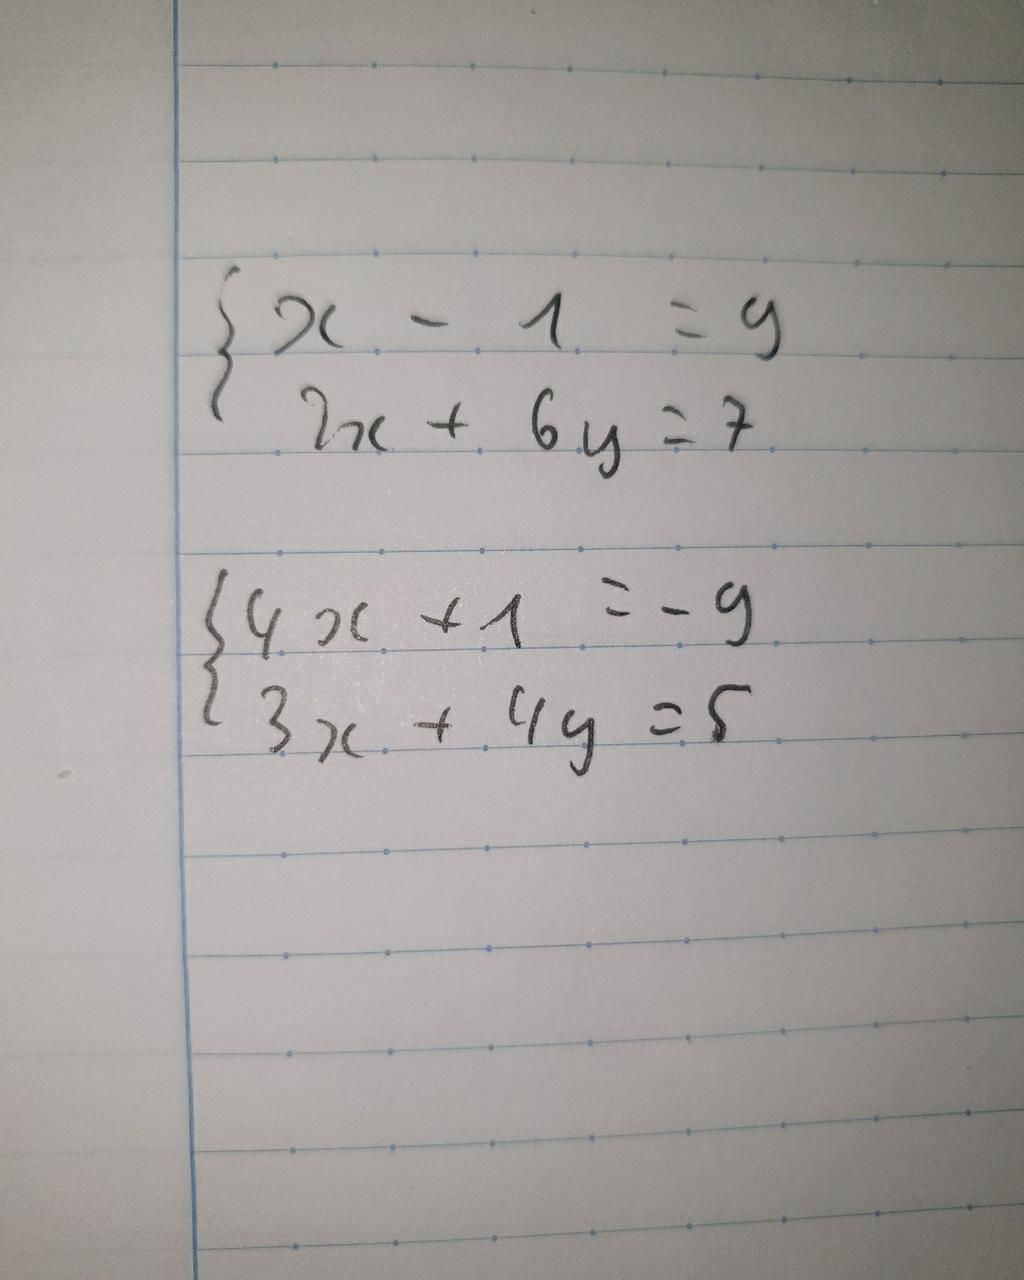 { x - 1 = 9
2x + 6y = 7
{ 4x + 1 = - 9
3x + 4y = 5